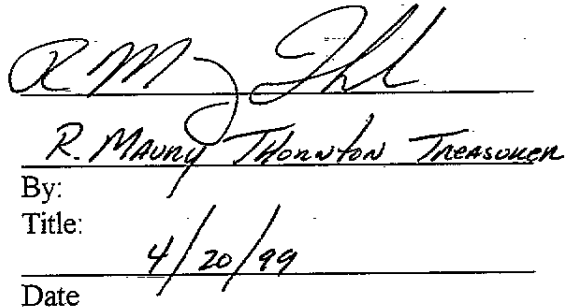 R. Maury Thornton Treasurer
By:
Title:
4/20/99
Date